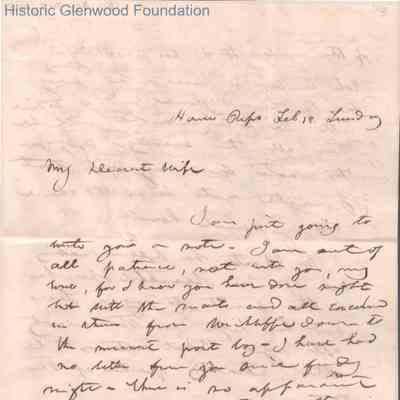 Historic Glenwood Foundation
House Reps Feb 18 Sunday
My Dearest Wife
I am just going to
write you a note - I am out of
all patience, not with you, my
love, for I know you have done right
but with the mails and all concerned
in them from Wickliffe down to
the meanest post boy - I have had
no letter from you since friday
night - There is no apparent